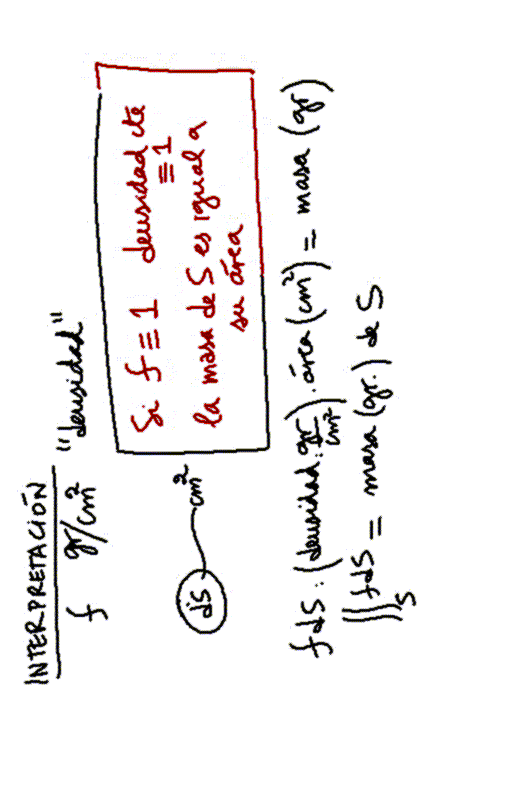 INTERPRETACIÓN
f gr/cm² "densidad"
dS cm²
Si f ≡ 1 densidad cte
≡ 1
la masa de S es igual a
su área
f dS : (densidad: gr/cm²) · área (cm²) = masa (gr)
∬_S f dS = masa (gr.) de S